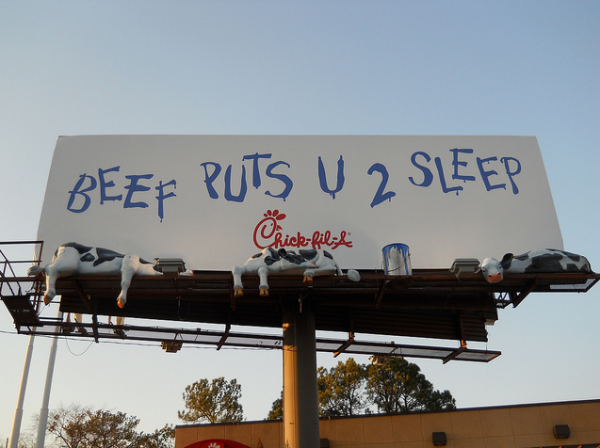 BEEF PUTS U 2 SLEEP
Chick-fil-A